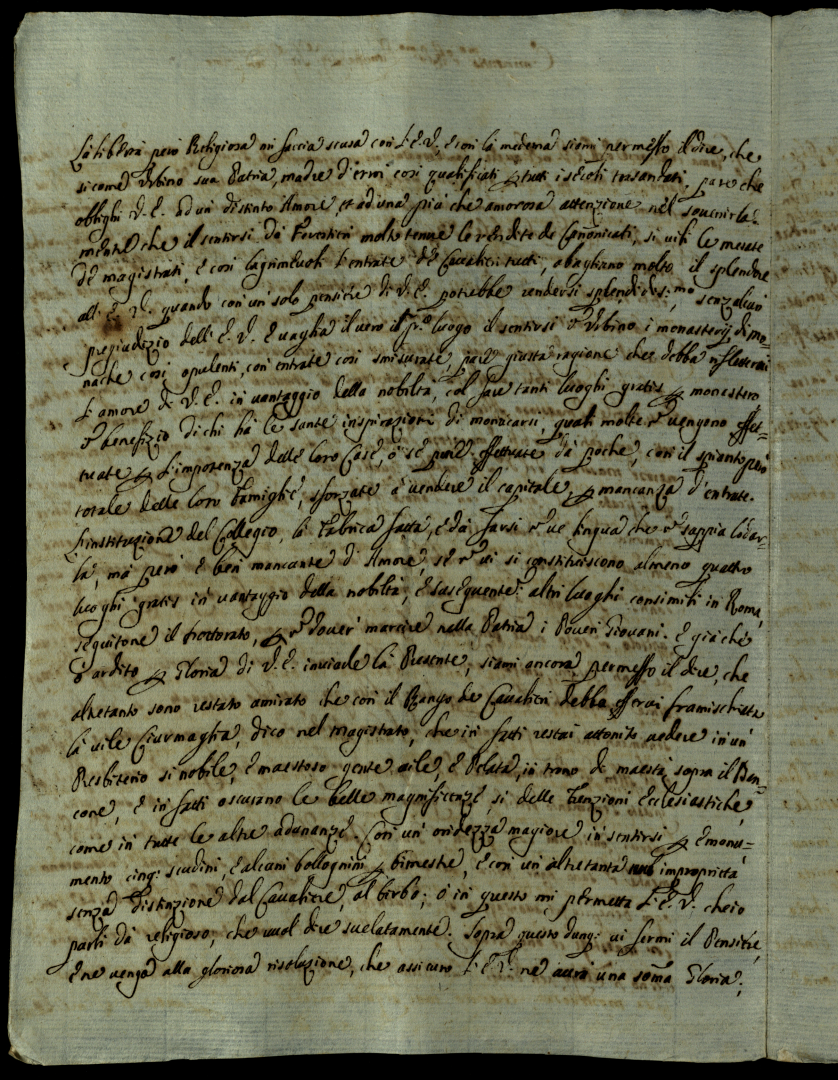 La libertà però Religiosa mi faccia scusa con l'E.V., e con la medema siami permesso il dire, che
sicome Urbino sua Patria, madre d'eroi così qualificati p tutti i secoli trasandati, pare che
oblighi V.E. ad un distinto Amore, et ad una più che amorosa attenzione nel souenirla.
mentre che il sentirsi da Forestieri molto tenue le rendite de Canonicati, si uili le mesate
de magistrati, e così lagrimeuoli l'entrate de Caualieri tutti, abagliano molto il splendore
all'E.V. quando con un solo pensiere di V.E. potrebbe rendersi splendidiss:mo senz'alcun
pregiudizio dell'E.V. E uaglia il uero il p.o luogo il sentirsi Urbino i monasterij di mo=
nache così opulenti, con entrate così smisurate, pare giusta ragione che debba
l'amore di V.E. in uantaggio della nobiltà, col fare tanti luoghi gratis p monastero
benefizio di chi hà le sante inspirazioni di monacarsi, quali molte uengono effet=
tuate p l'impotenza delle loro Case, ò se pure effettuate da poche, con il spianto però
totale delle loro famiglie, sforzate a uendere il capitale, p mancanza d'entrate.
L'instituzione del Collegio, la Fabrica fatta, e da farsi ue lingua che sappia lodar=
la, mà però è ben mancante d'Amore, se ui si constituiscono almeno quattro
luoghi gratis in uantaggio della nobiltà, e susseguente altri luoghi consimili in Roma,
seguitone il dottorato, p douer marcire nella Patria i Poueri Giouani. E già che
ò ardito p Gloria di V.E. inuiarle la Presente, siami ancora permesso il dire, che
altretanto sono restato amirato che con il Rango de Caualieri debba esserui framischiata
la uile Ciurmaglia, dico nel magistrato, che in fatti restai attonito uedere in un
Presbiterio si nobile, e maestoso gente uile, e Pelata, in trono di maestà sopra il Ban=
cone, e in fatti oscurano le belle magnificenze si delle funzioni Ecclesiastiche,
come in tutte le altre adunanze. Con un' oridezza magiore in sentirsi p emonu=
mento cinq: scudini, e alcuni bollognini p bimestre, e con un' altretanta improprietà
senza distinzione dal Caualiere, al birbo; ò in questo mi permetta l'E.V. che io
parli da religioso, che uuol dire suelatamente. Sopra questo dunq: ui fermi il Pensiere,
e ne uenga alla gloriosa risoluzione, che assicuro l'E.V. ne aurà una soma Gloria;